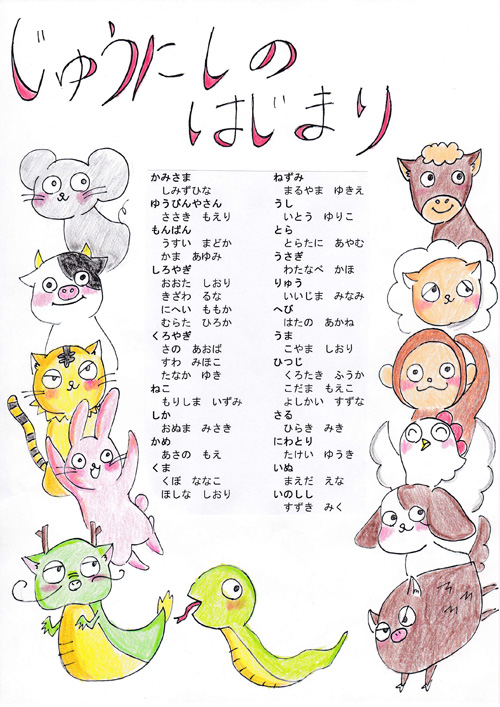 じゅうにしの
はじまり
かみさま
しみずひな
ゆうびんやさん
ささき もえり
もんばん
うすい まどか
かま あゆみ
しろやぎ
おおた しおり
きざわ るな
にへい ももか
むらた ひろか
くろやぎ
さの あおば
すわ みほこ
たなか ゆき
ねこ
もりしま いずみ
しか
おぬま みさき
かめ
あさの もえ
くま
くぼ ななこ
ほしな しおり
ねずみ
まるやま ゆきえ
うし
いとう ゆりこ
とら
とらたに あやむ
うさぎ
わたなべ かほ
りゅう
いいじま みなみ
へび
はたの あかね
うま
こやま しおり
ひつじ
くろたき ふうか
こだま もえこ
よしかい すずな
さる
ひらき みき
にわとり
たけい ゆうき
いぬ
まえだ えな
いのしし
すずき みく